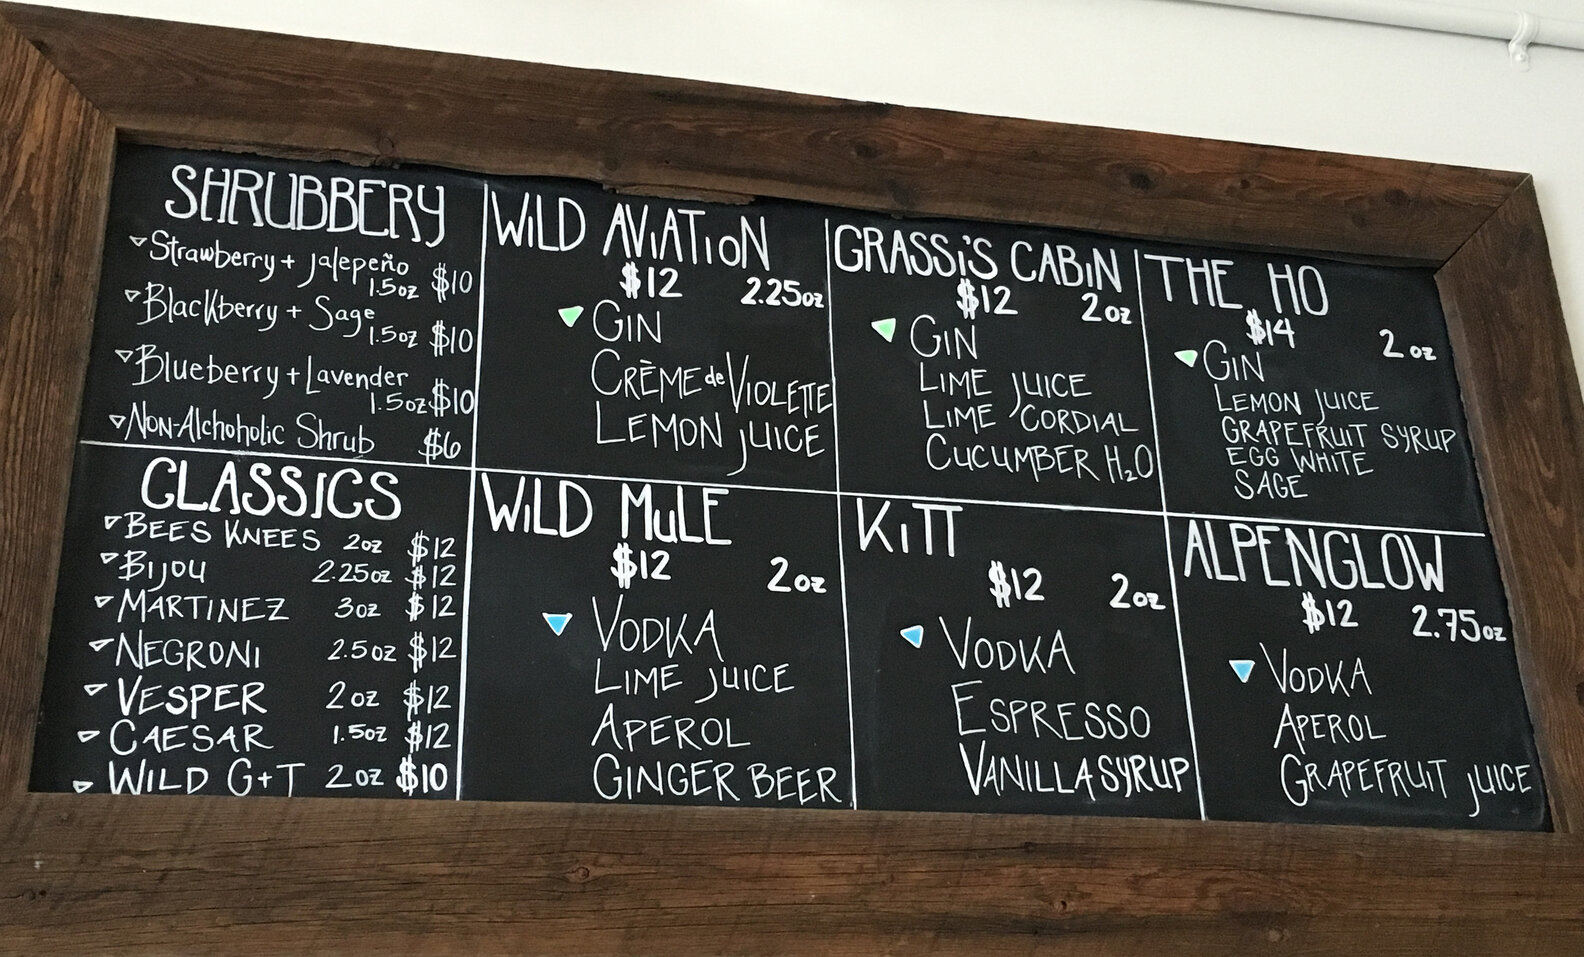 SHRUBBERY
Strawberry + Jalepeño
1.5oz $10
Blackberry + Sage
1.5oz $10
Blueberry + Lavender
1.5oz $10
Non-Alchoholic Shrub $6
WiLD AViATioN
$12 2.25oz
GIN
CRÈME de VIOLETTE
LEMON JUICE
GRASSiS CABiN
$12 2oz
GIN
LIME JUICE
LIME CORDIAL
CUCUMBER H₂O
THE HO
$14 2oz
GIN
LEMON JUICE
GRAPEFRUIT SYRUP
EGG WHITE
SAGE
CLASSICS
BEES KNEES 2oz $12
BIJOU 2.25oz $12
MARTINEZ 3oz $12
NEGRONI 2.5oz $12
VESPER 2oz $12
CAESAR 1.5oz $12
WILD G+T 2oz $10
WiLD MuLE
$12 2oz
VODKA
LIME JUICE
APEROL
GINGER BEER
KiTT
$12 2oz
VODKA
ESPRESSO
VANILLA SYRUP
ALPENGLOW
$12 2.75oz
VODKA
APEROL
GRAPEFRUIT JUICE